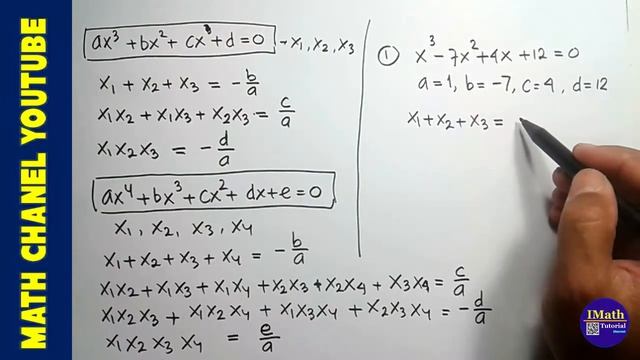 MATH CHANEL YOUTUBE
ax³ + bx² + cx⁹ + d = 0 → x₁, x₂, x₃
x₁ + x₂ + x₃ = - b/a
x₁x₂ + x₁x₃ + x₂x₃ = c/a
x₁x₂x₃ = - d/a
ax⁴ + bx³ + cx² + dx + e = 0
x₁, x₂, x₃, x₄
x₁ + x₂ + x₃ + x₄ = - b/a
x₁x₂ + x₁x₃ + x₁x₄ + x₂x₃ + x₂x₄ + x₃x₄ = c/a
x₁x₂x₃ + x₁x₂x₄ + x₁x₃x₄ + x₂x₃x₄ = - d/a
x₁x₂x₃x₄ = e/a
① x³ - 7x² + 4x + 12 = 0
a = 1, b = -7, c = 4, d = 12
x₁ + x₂ + x₃ =
IMath
Tutorial